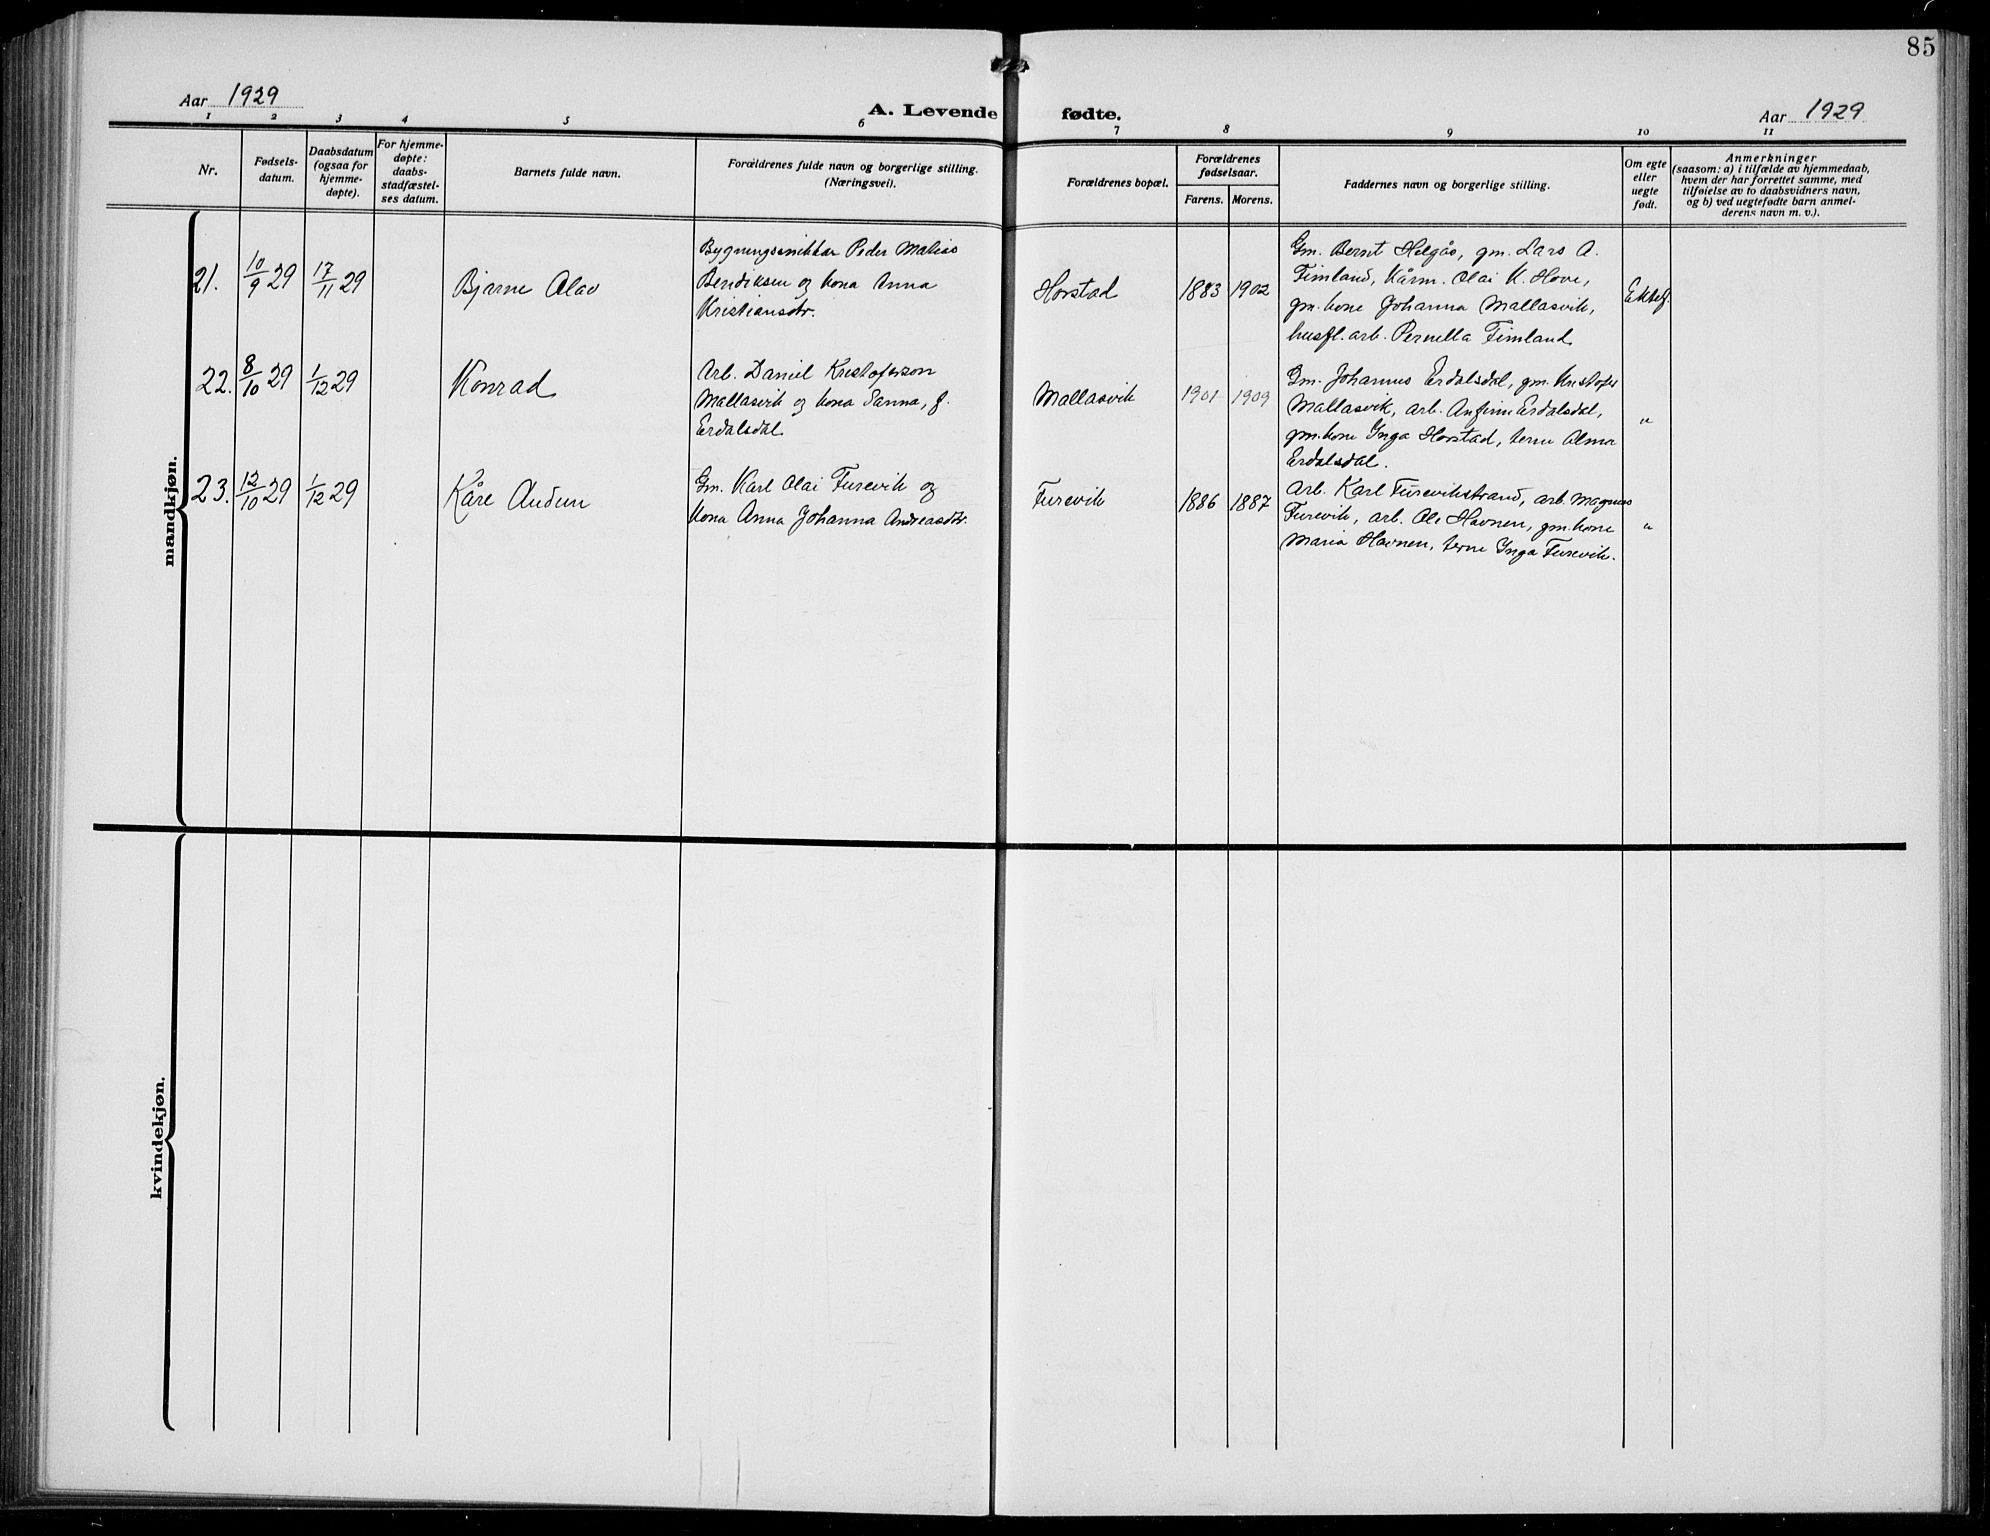 85
Aar 1929
A. Levende fødte.
Aar 1929
1 2 3 4 5 6 7 8 9 10 11
Nr.
Fødsels-
datum.
Daabsdatum
(ogsaa for
hjemme-
døpte).
For hjemme-
døpte:
daabs-
stadfæstel-
ses datum.
Barnets fulde navn.
Forældrenes fulde navn og borgerlige stilling.
(Næringsvei).
Forældrenes bopæl.
Forældrenes
fødselsaar.
Farens. Morens.
Faddernes navn og borgerlige stilling.
Om egte
eller
uegte
født.
Anmerkninger
(saasom: a) i tilfælde av hjemmedaab,
hvem der har forrettet samme, med
tilføielse av to daabsvidners navn,
og b) ved uegtefødte barn anmel-
derens navn m. v.).
mandkjøn.
21. 10/9 29 17/11 29 Bjarne Olav
Bygningssnikkar Peder Matias
Bendiksen og kona Anna
Kristiansdtr.
Horstad 1883 1902
Gm. Bernt Helgås, gm. Lars A.
Timland, Kårm. Olai K. Hove,
gm. kone Johanna Mallasvik,
husfl. arb. Pernella Timland
Ektef.
22. 8/10 29 1/12 29 Konrad
Arb. Daniel Kristoferson
Mallasvik og kona Sanna, f.
Erdalsdal
Mallasvik 1901 1909
Gm. Johannes Erdalsdal, gm. Kristofer
Mallasvik, arb. Anfinn Erdalsdal,
gm. kone Inga Horstad, terne Alma
Erdalsdal.
"
23. 12/10 29 1/12 29 Kåre Audun
Gm. Karl Olai Furevik og
kona Anna Johanna Andreasdtr.
Furevik 1886 1887
Arb. Karl Furevikstrand, arb. Magnus
Furevik, arb. Ole Havnen, gm. kone
Maria Havnen, terne Inga Furevik.
"
kvindekjøn.